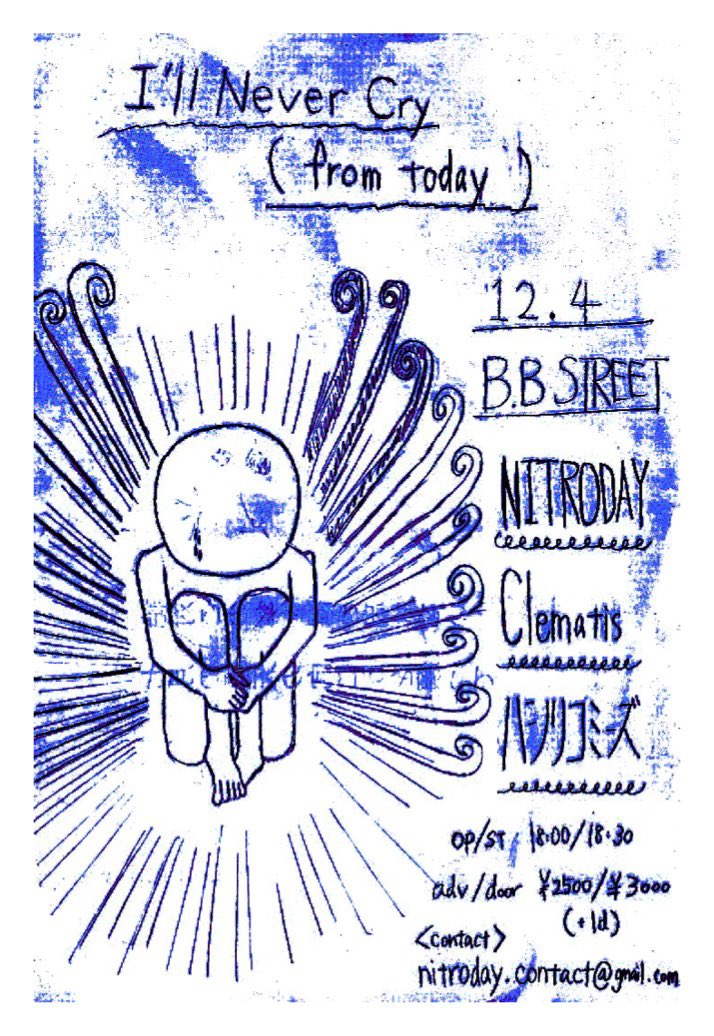 I'll Never Cry
( from today )
12.4
B.B STREET
NITRODAY
Clematis
ハシリコミーズ
OP/ST 18:00/18:30
adv/door ¥2500/¥3000
(+1d)
<contact>
nitroday.contact@gmail.com